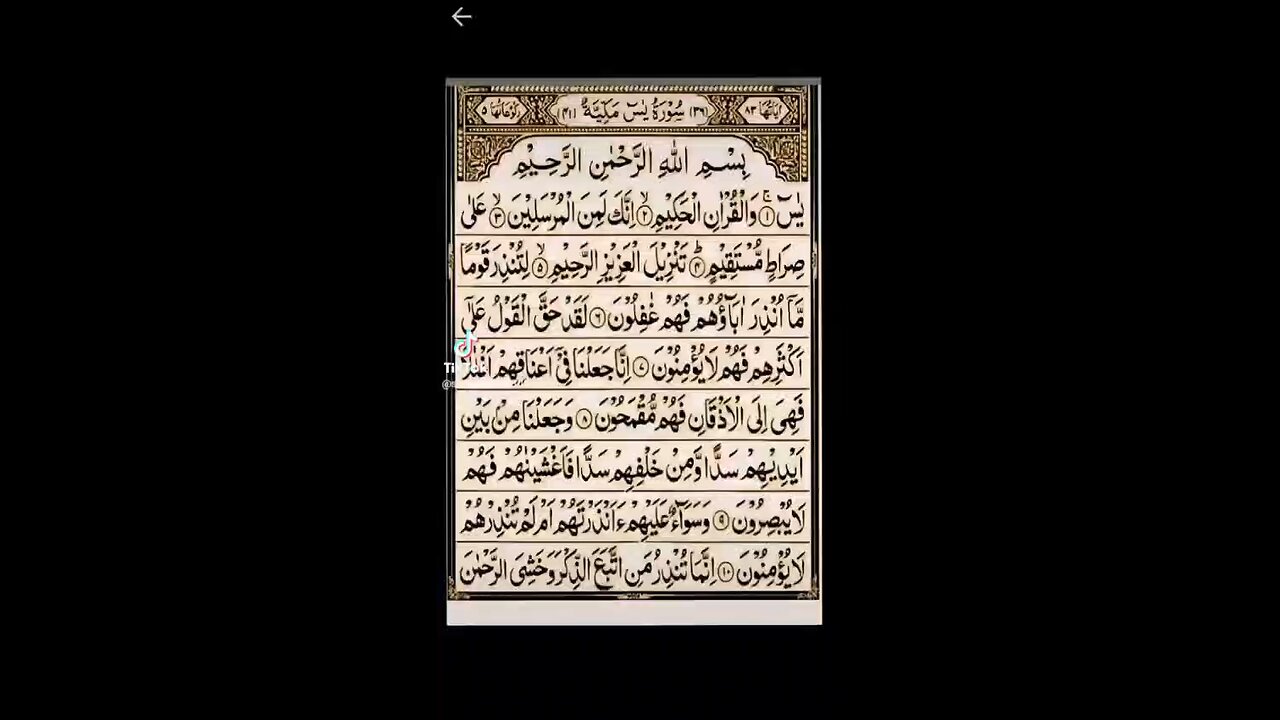 اٰيَاتُهَا ٨٣ (٣٦) سُوْرَةُ يٰسٓ مَكِّيَّةٌ (٤١) رُكُوْعَاتُهَا ٥
بِسْمِ اللّٰهِ الرَّحْمٰنِ الرَّحِيْمِ
يٰسٓ ۚ ١ وَالْقُرْاٰنِ الْحَكِيْمِ ۙ ٢ اِنَّكَ لَمِنَ الْمُرْسَلِيْنَ ۙ ٣ عَلٰى
صِرَاطٍ مُّسْتَقِيْمٍ ؕ ٤ تَنْزِيْلَ الْعَزِيْزِ الرَّحِيْمِ ۙ ٥ لِتُنْذِرَ قَوْمًا
مَّاۤ اُنْذِرَ اٰبَآؤُهُمْ فَهُمْ غٰفِلُوْنَ ٦ لَقَدْ حَقَّ الْقَوْلُ عَلٰۤى
TikTok
اَكْثَرِهِمْ فَهُمْ لَا يُؤْمِنُوْنَ ٧ اِنَّا جَعَلْنَا فِيْۤ اَعْنَاقِهِمْ اَغْلٰلًا
فَهِيَ اِلَى الْاَذْقَانِ فَهُمْ مُّقْمَحُوْنَ ٨ وَجَعَلْنَا مِنْۢ بَيْنِ
اَيْدِيْهِمْ سَدًّا وَّمِنْ خَلْفِهِمْ سَدًّا فَاَغْشَيْنٰهُمْ فَهُمْ
لَا يُبْصِرُوْنَ ٩ وَسَوَآءٌ عَلَيْهِمْ ءَاَنْذَرْتَهُمْ اَمْ لَمْ تُنْذِرْهُمْ
لَا يُؤْمِنُوْنَ ١٠ اِنَّمَا تُنْذِرُ مَنِ اتَّبَعَ الذِّكْرَ وَخَشِيَ الرَّحْمٰنَ